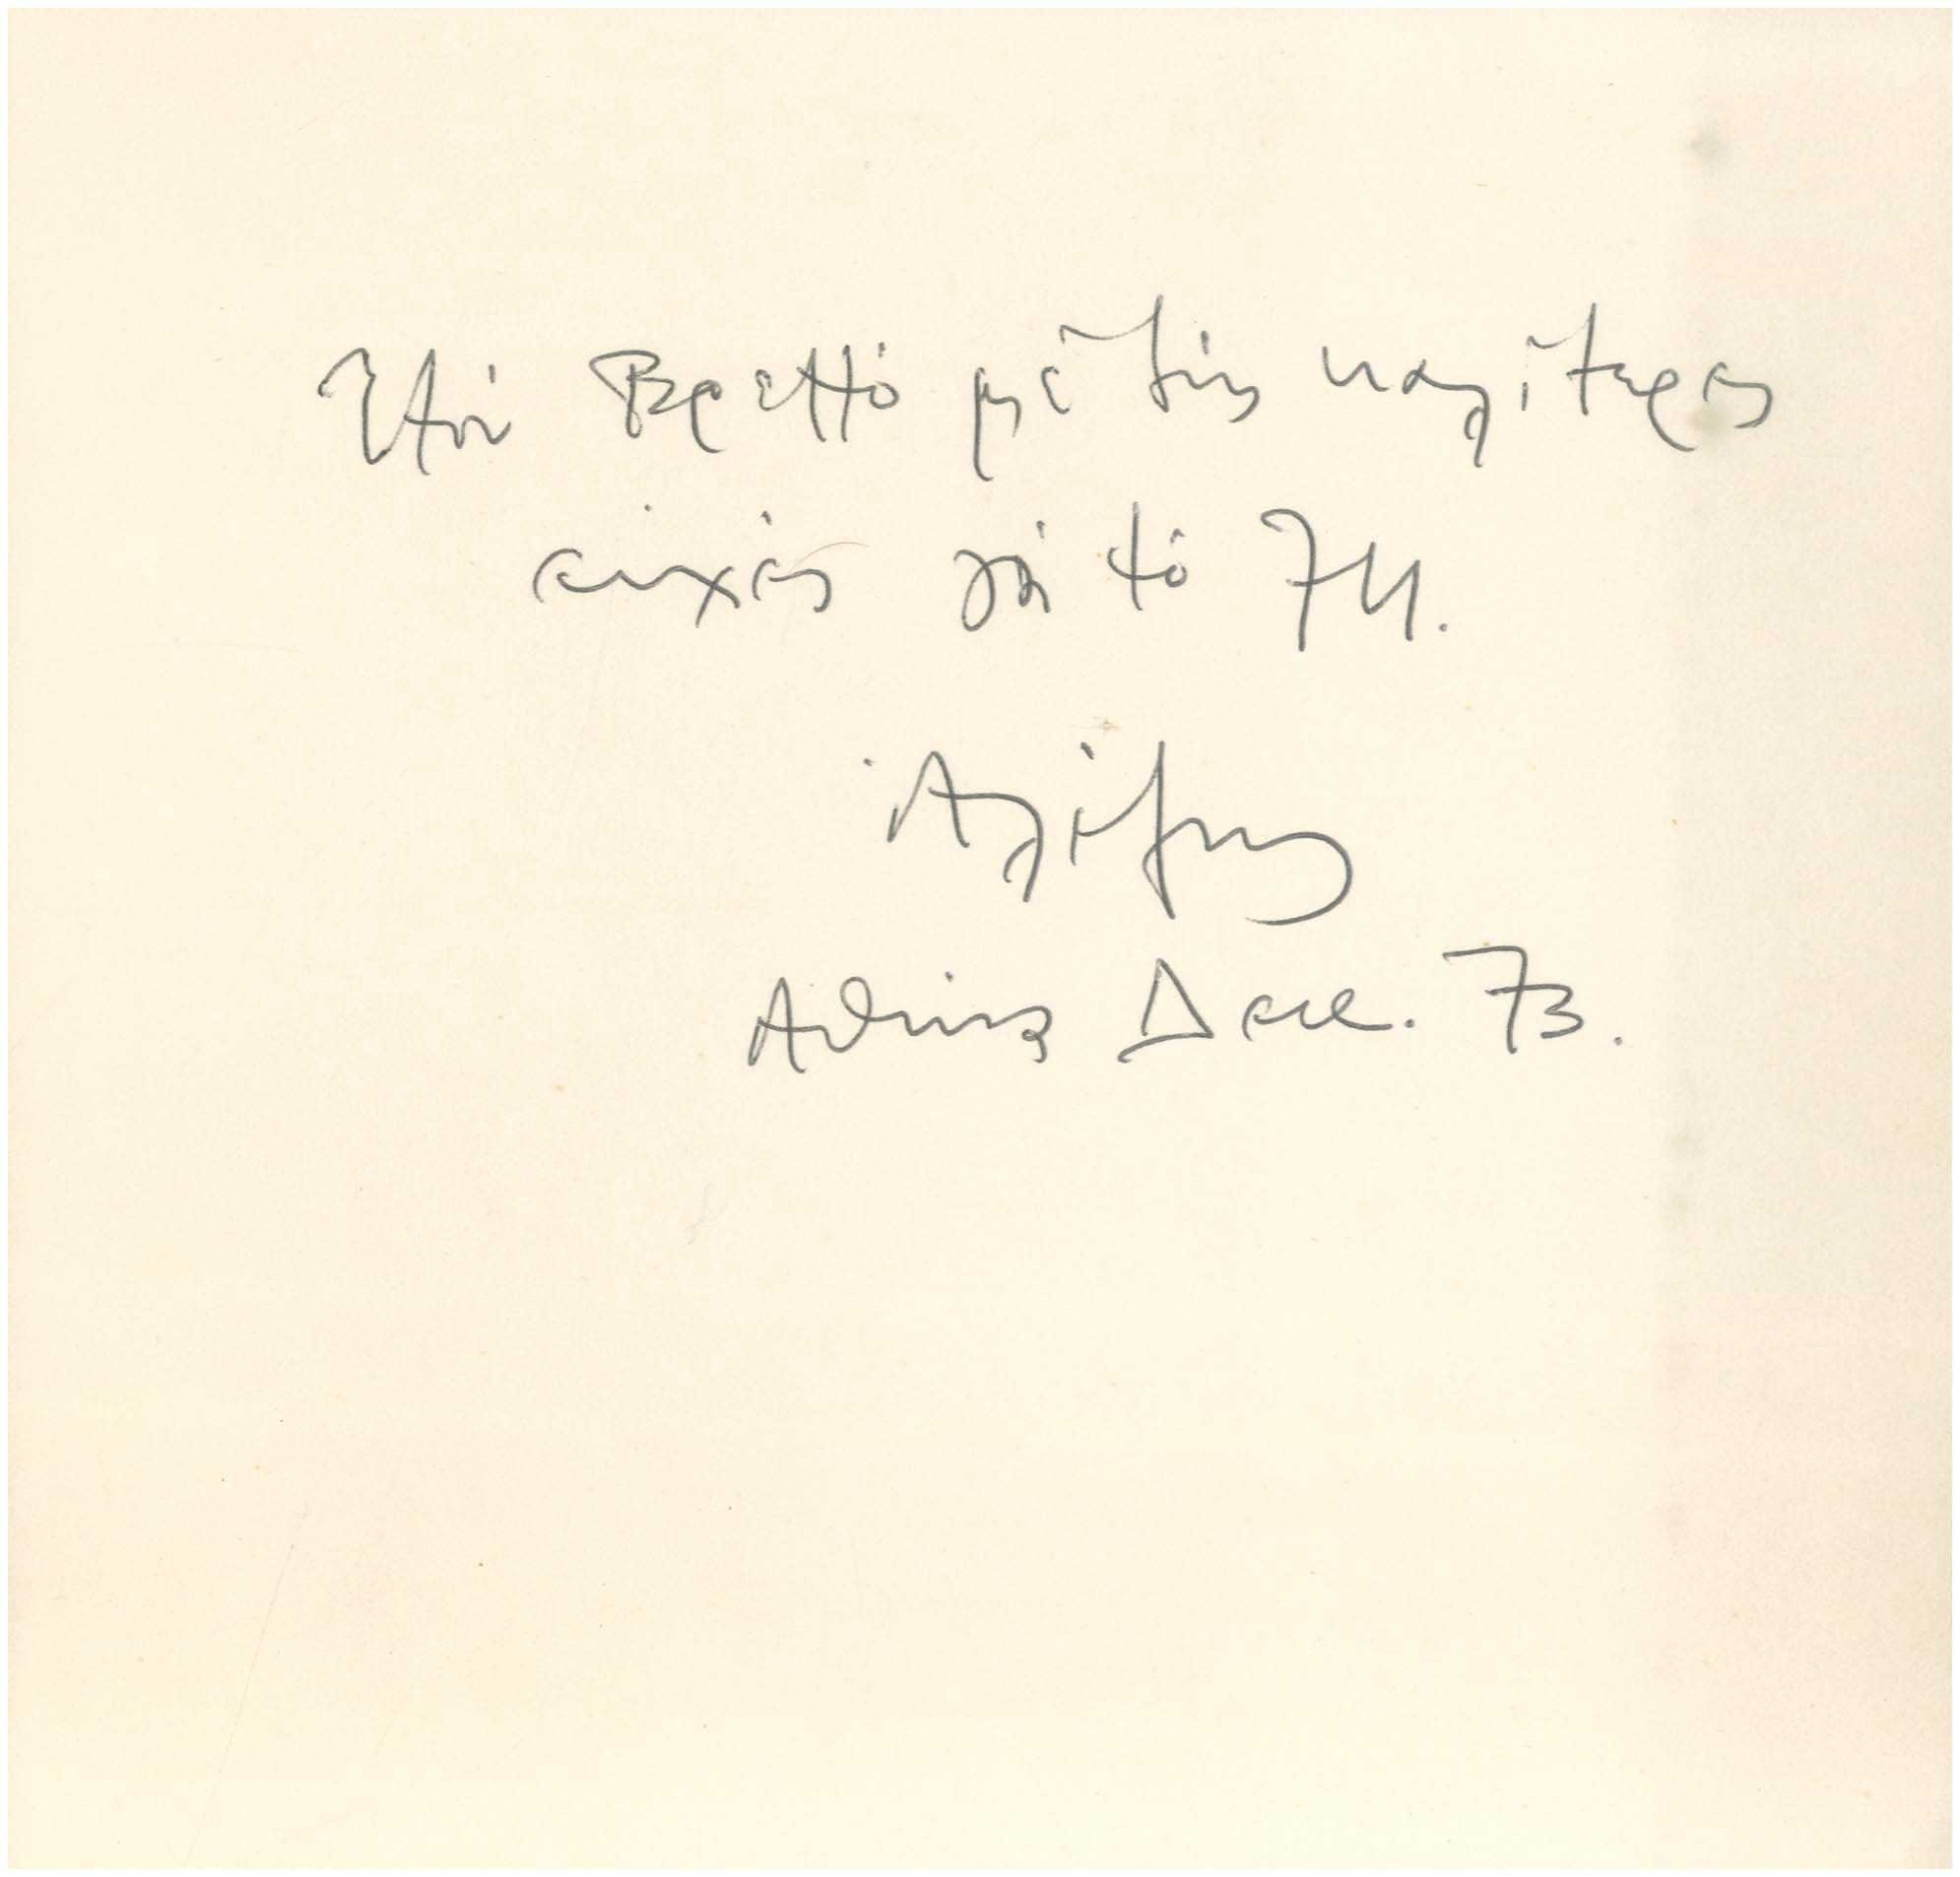 Στὸν Βρεττὸ μὲ τὶς καλύτερες
εὐχὲς γιὰ τὸ 74.
Ἀλέξης
Αθήνα Δεκ. 73.